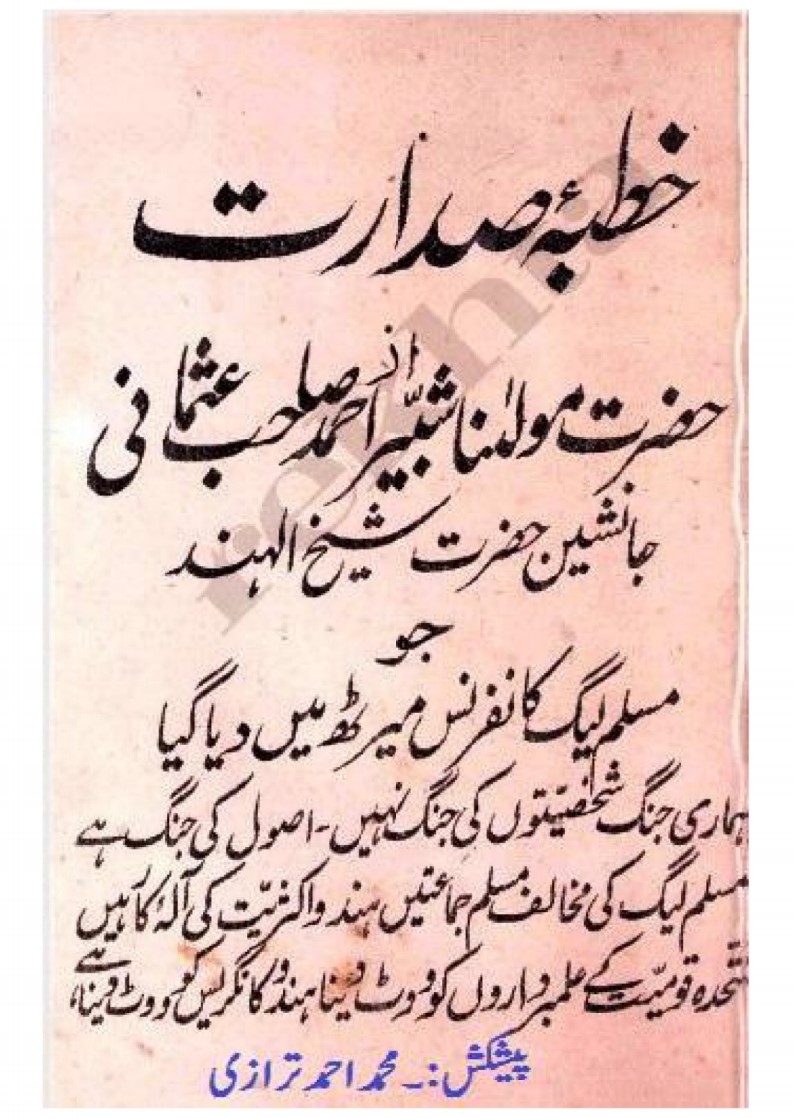 خطبۂ صدارت
از
حضرت مولٰنا شبّیر احمد صاحب عثمانی
جانشین حضرت شیخ الہند
جو
مسلم لیگ کانفرنس میرٹھ میں دیا گیا
ہماری جنگ شخصیّتوں کی جنگ نہیں۔ اصول کی جنگ ہے
مسلم لیگ کی مخالف مسلم جماعتیں ہندو اکثریّت کی آلۂ کار ہیں
متحدہ قومیّت کے علمبرداروں کو ووٹ دینا ہندو کانگریس کو ووٹ دینا ہے
پیشکش:۔ محمد احمد ترازی
rekhta